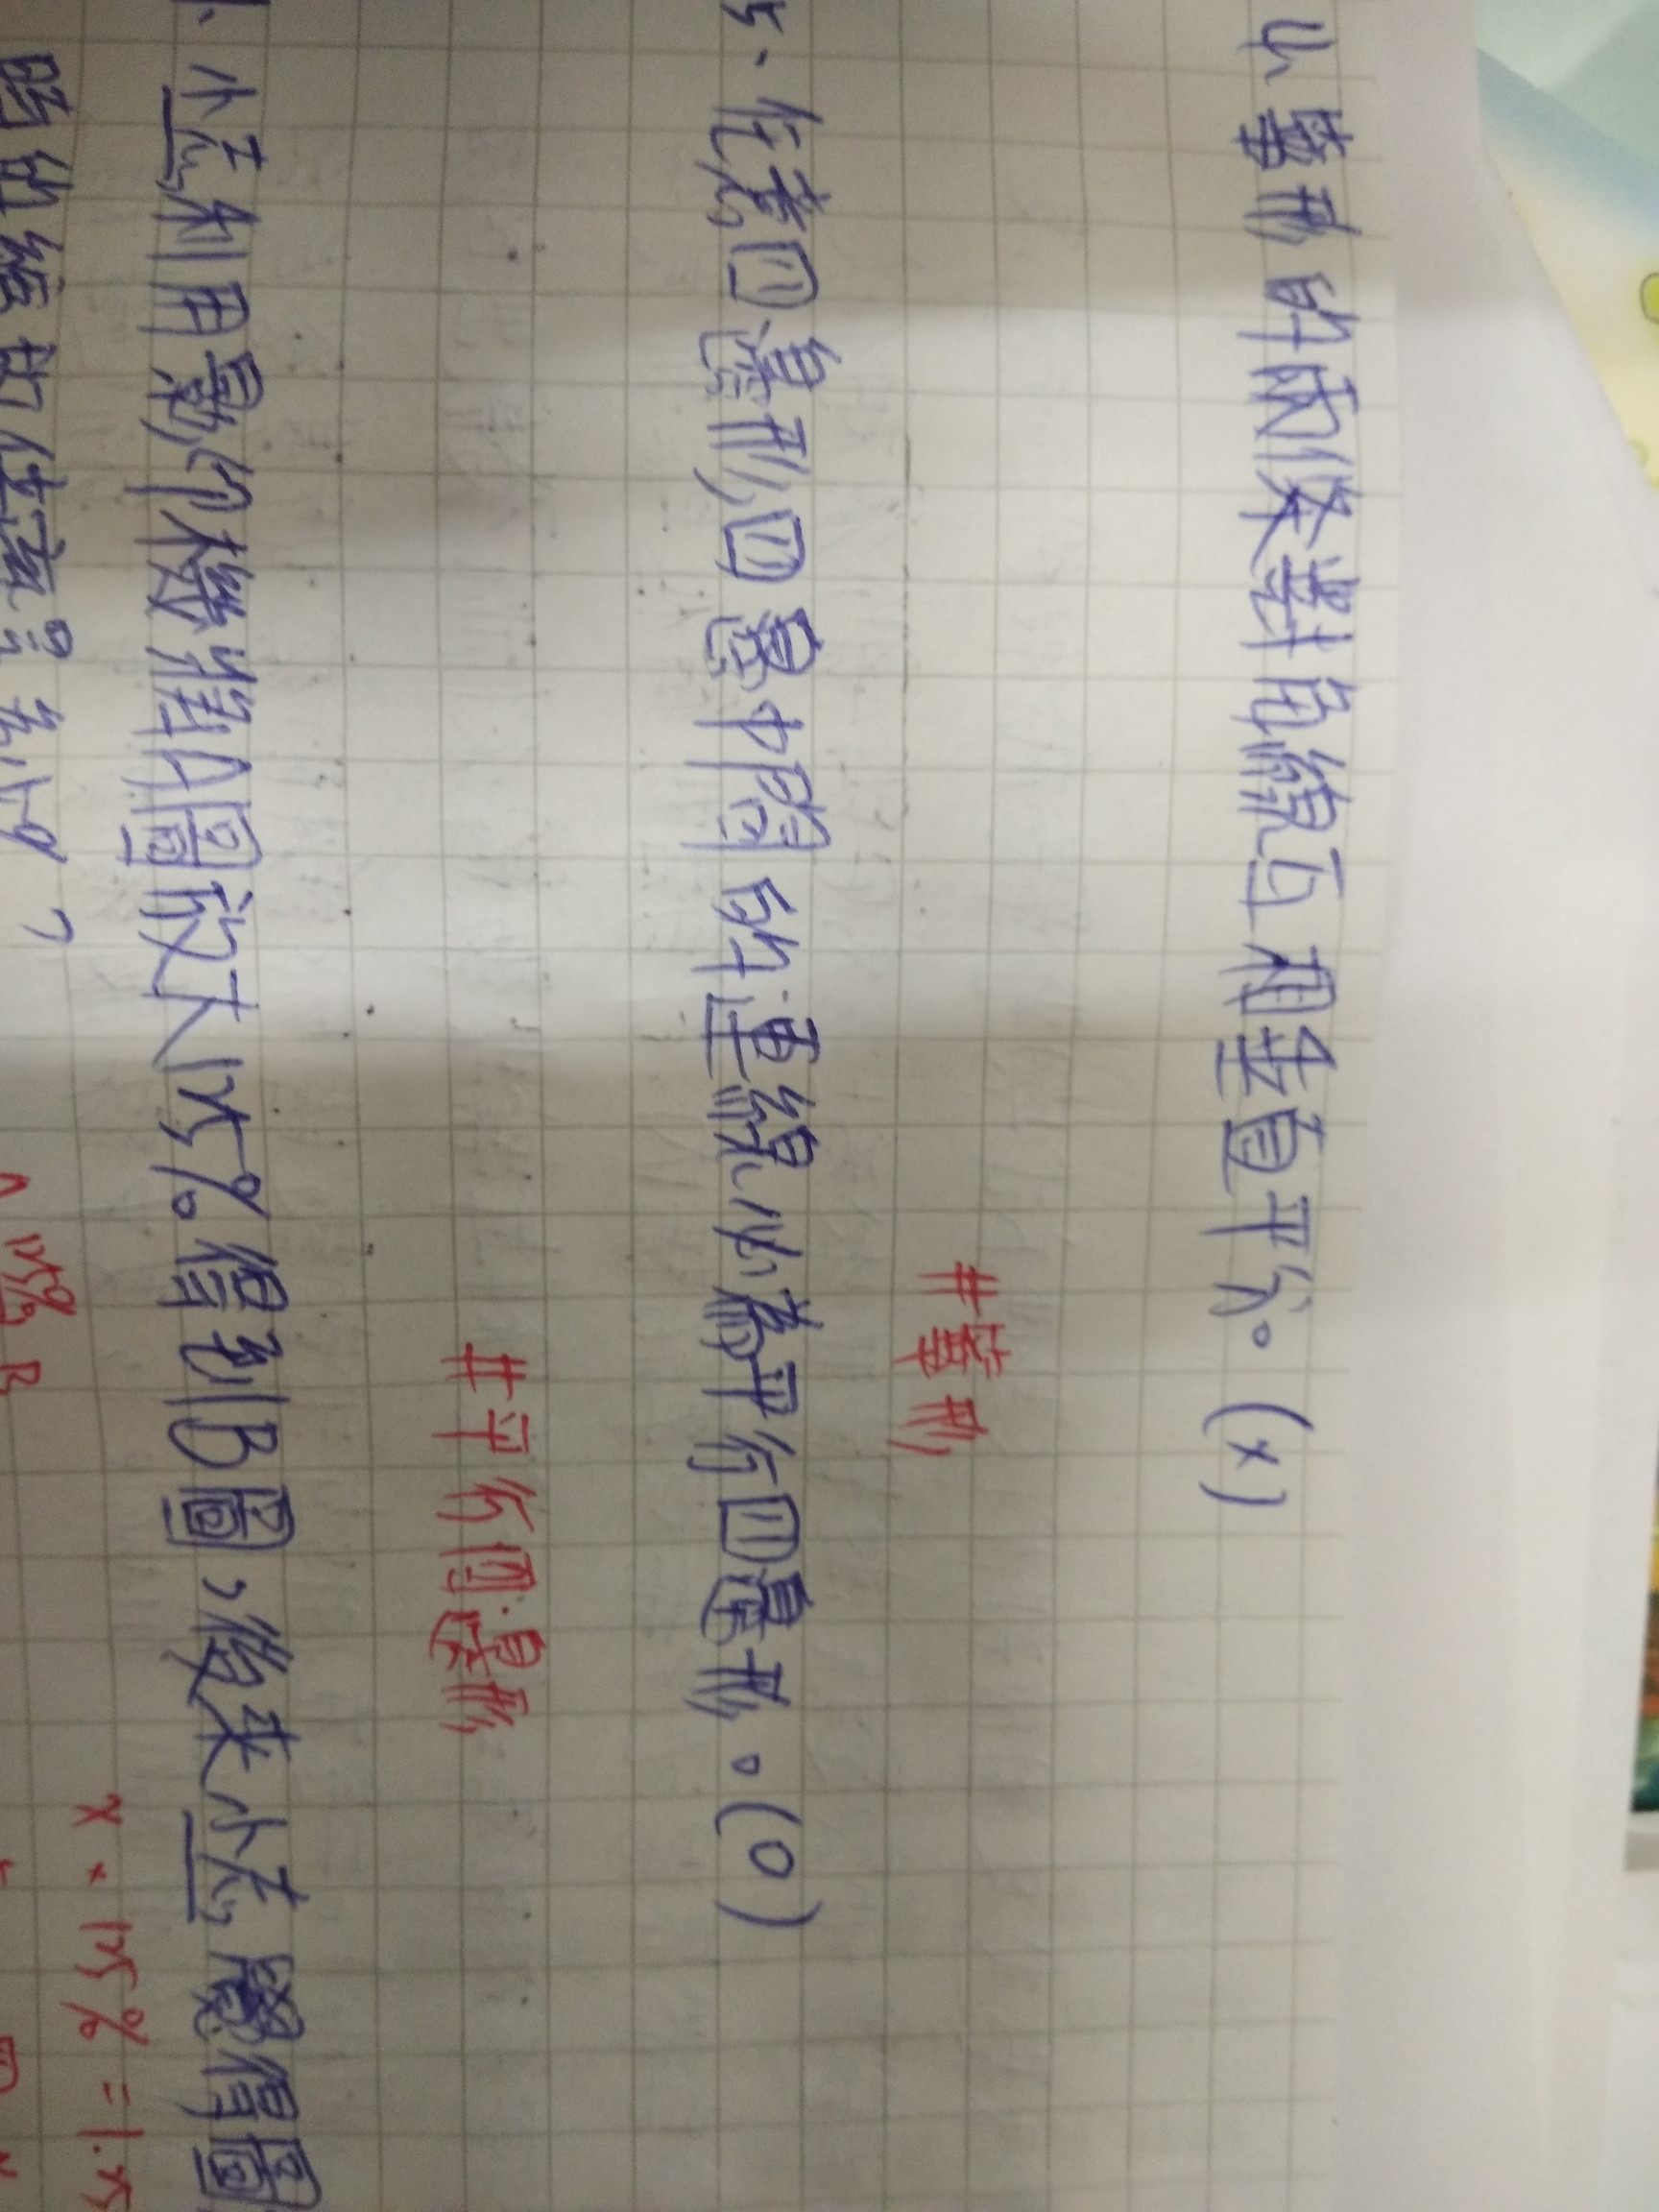 4、箏形的兩條對角線互相垂直平分。(×)
#箏形
5、任意四邊形四邊中間的連線必為平行四邊形。(O)
#平行四邊形
小志利用影印機將A圖放大15%得到B圖,後來小志覺得圖
x × 115% = 1.15